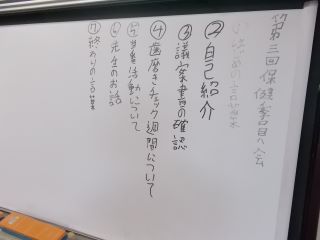 第三回保健委員会
① 始めの言葉
② 自己紹介
③ 議案書の確認
④ 歯磨きチェック週間について
⑤ 常時活動について
⑥ 先生のお話
⑦ 終わりの言葉